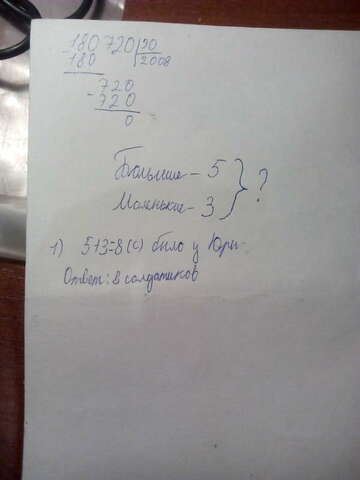 180720 90
180 2008
720
- 720
0
Большие - 5
Маленькие - 3 } ?
1) 5+3=8 (с) было у Юры.
Ответ: 8 солдатиков